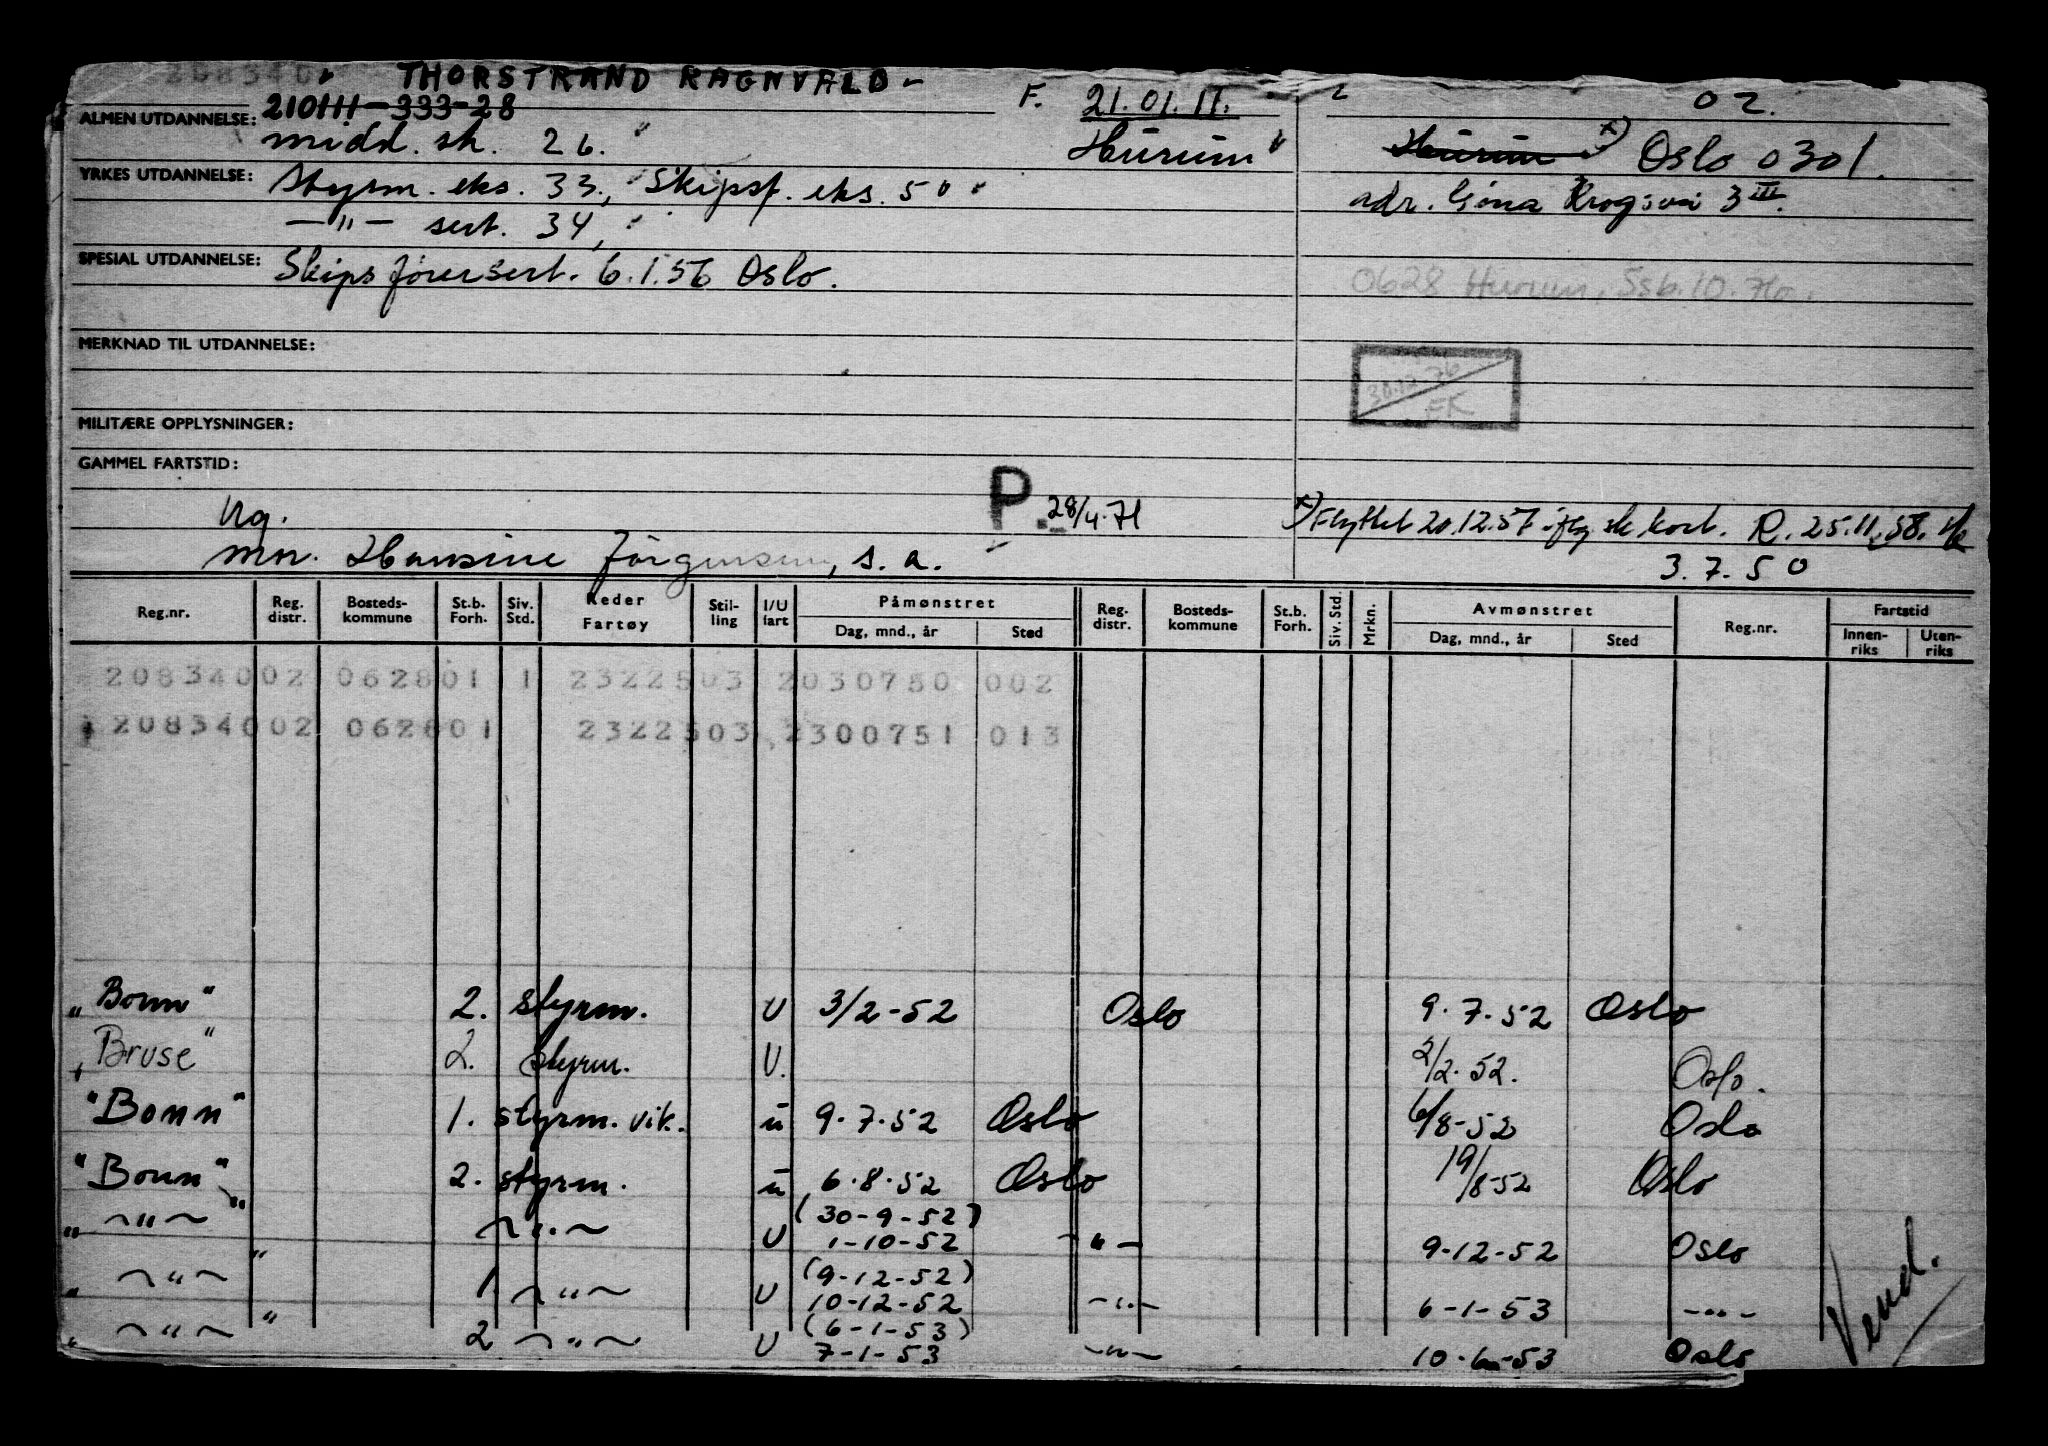 20834 THORSTRAND RAGNVALD F. 21.01.11. 02.
210111-333-28
ALMEN UTDANNELSE: midd. sk. 26. Hurum Hurum x) Oslo 0301.
YRKES UTDANNELSE: styrm. eks. 33, Skipsf. eks. 50 adr. Gina Krogsvei 3 III.
—"— sert. 34,
SPESIAL UTDANNELSE: Skipsførersert. 6.1.56 Oslo.
0628 Hurum, Ssb. 10.76.
MERKNAD TIL UTDANNELSE:
30.12.76
EK
MILITÆRE OPPLYSNINGER:
GAMMEL FARTSTID:
Ug. P. 28/4.71 x) Flyttet 20.12.57 iflg sk. kort. R. 25.11.58.
mor. Hansine Jörgensen, s. a. 3.7.50
Reg.nr. Reg. distr. Bosteds- kommune St.b. Forh. Siv. Std. Reder Fartøy Stil- ling I/U fart Påmønstret Dag, mnd., år Sted Reg. distr. Bosteds- kommune St.b. Forh. Siv. Std. Mrkn. Avmønstret Dag, mnd., år Sted Reg.nr. Fartstid Innen- riks Uten- riks
20834002 062801 1 2322503 2030750 002
20834002 062801 2322503 2300751 013
"Bonn" 2. styrm. U 3/2-52 Oslo 9.7.52 Oslo
"Bruse" 2. styrm. U. 2/2.52. Oslo.
"Bonn" 1. styrm. vik. u 9.7.52 Oslo 6/8-52 Oslo
"Bonn" 2. styrm. u 6.8.52 Oslo 19/8-52 Oslo
(30-9-52)
" —"— " —"— U 1-10-52 —"— 9-12-52 Oslo
(9-12-52)
" —"— " 1. —"— U 10-12-52 —"— 6-1-53 —"—
(6-1-53)
" —"— " 2 —"— U 7-1-53 —"— 10-6-53 Oslo
Vend.